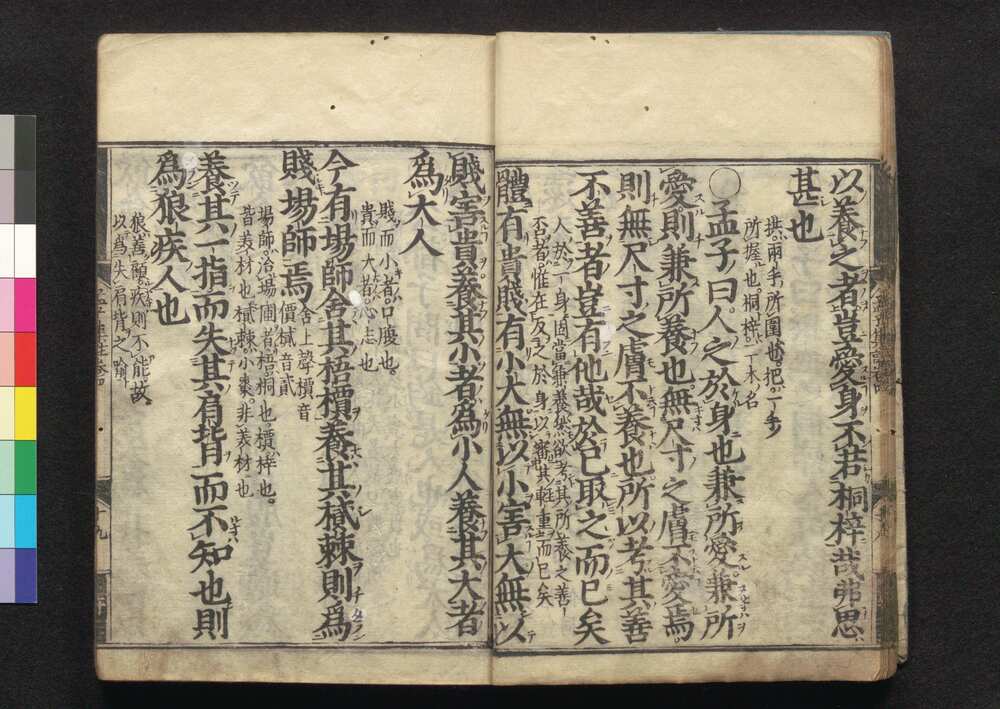 以養之者豈愛身不若桐梓哉弗思
甚也
拱兩手所圍也把一手
所握也桐梓二木名
○孟子曰人之於身也兼所愛兼所
愛則兼所養也無尺寸之膚不愛焉
則無尺寸之膚不養也所以考其善
不善者豈有他哉於己取之而已矣
人於一身固當兼養然欲考其所養之善
否者惟在反之於身以審其輕重而已矣
體有貴賤有小大無以小害大無以
賤害貴養其小者爲小人養其大者
爲大人
賤而小者口腹也
貴而大者心志也
今有場師舍其梧檟養其樲棘則爲
賤場師焉
舍上聲檟音
賈樲音貳
場師治場圃者梧桐也檟梓也
皆美材也樲棘小棗非美材也
養其一指而失其肩背而不知也則
爲狼疾人也
狼善顧疾則不能故
以爲失肩背之喻
九